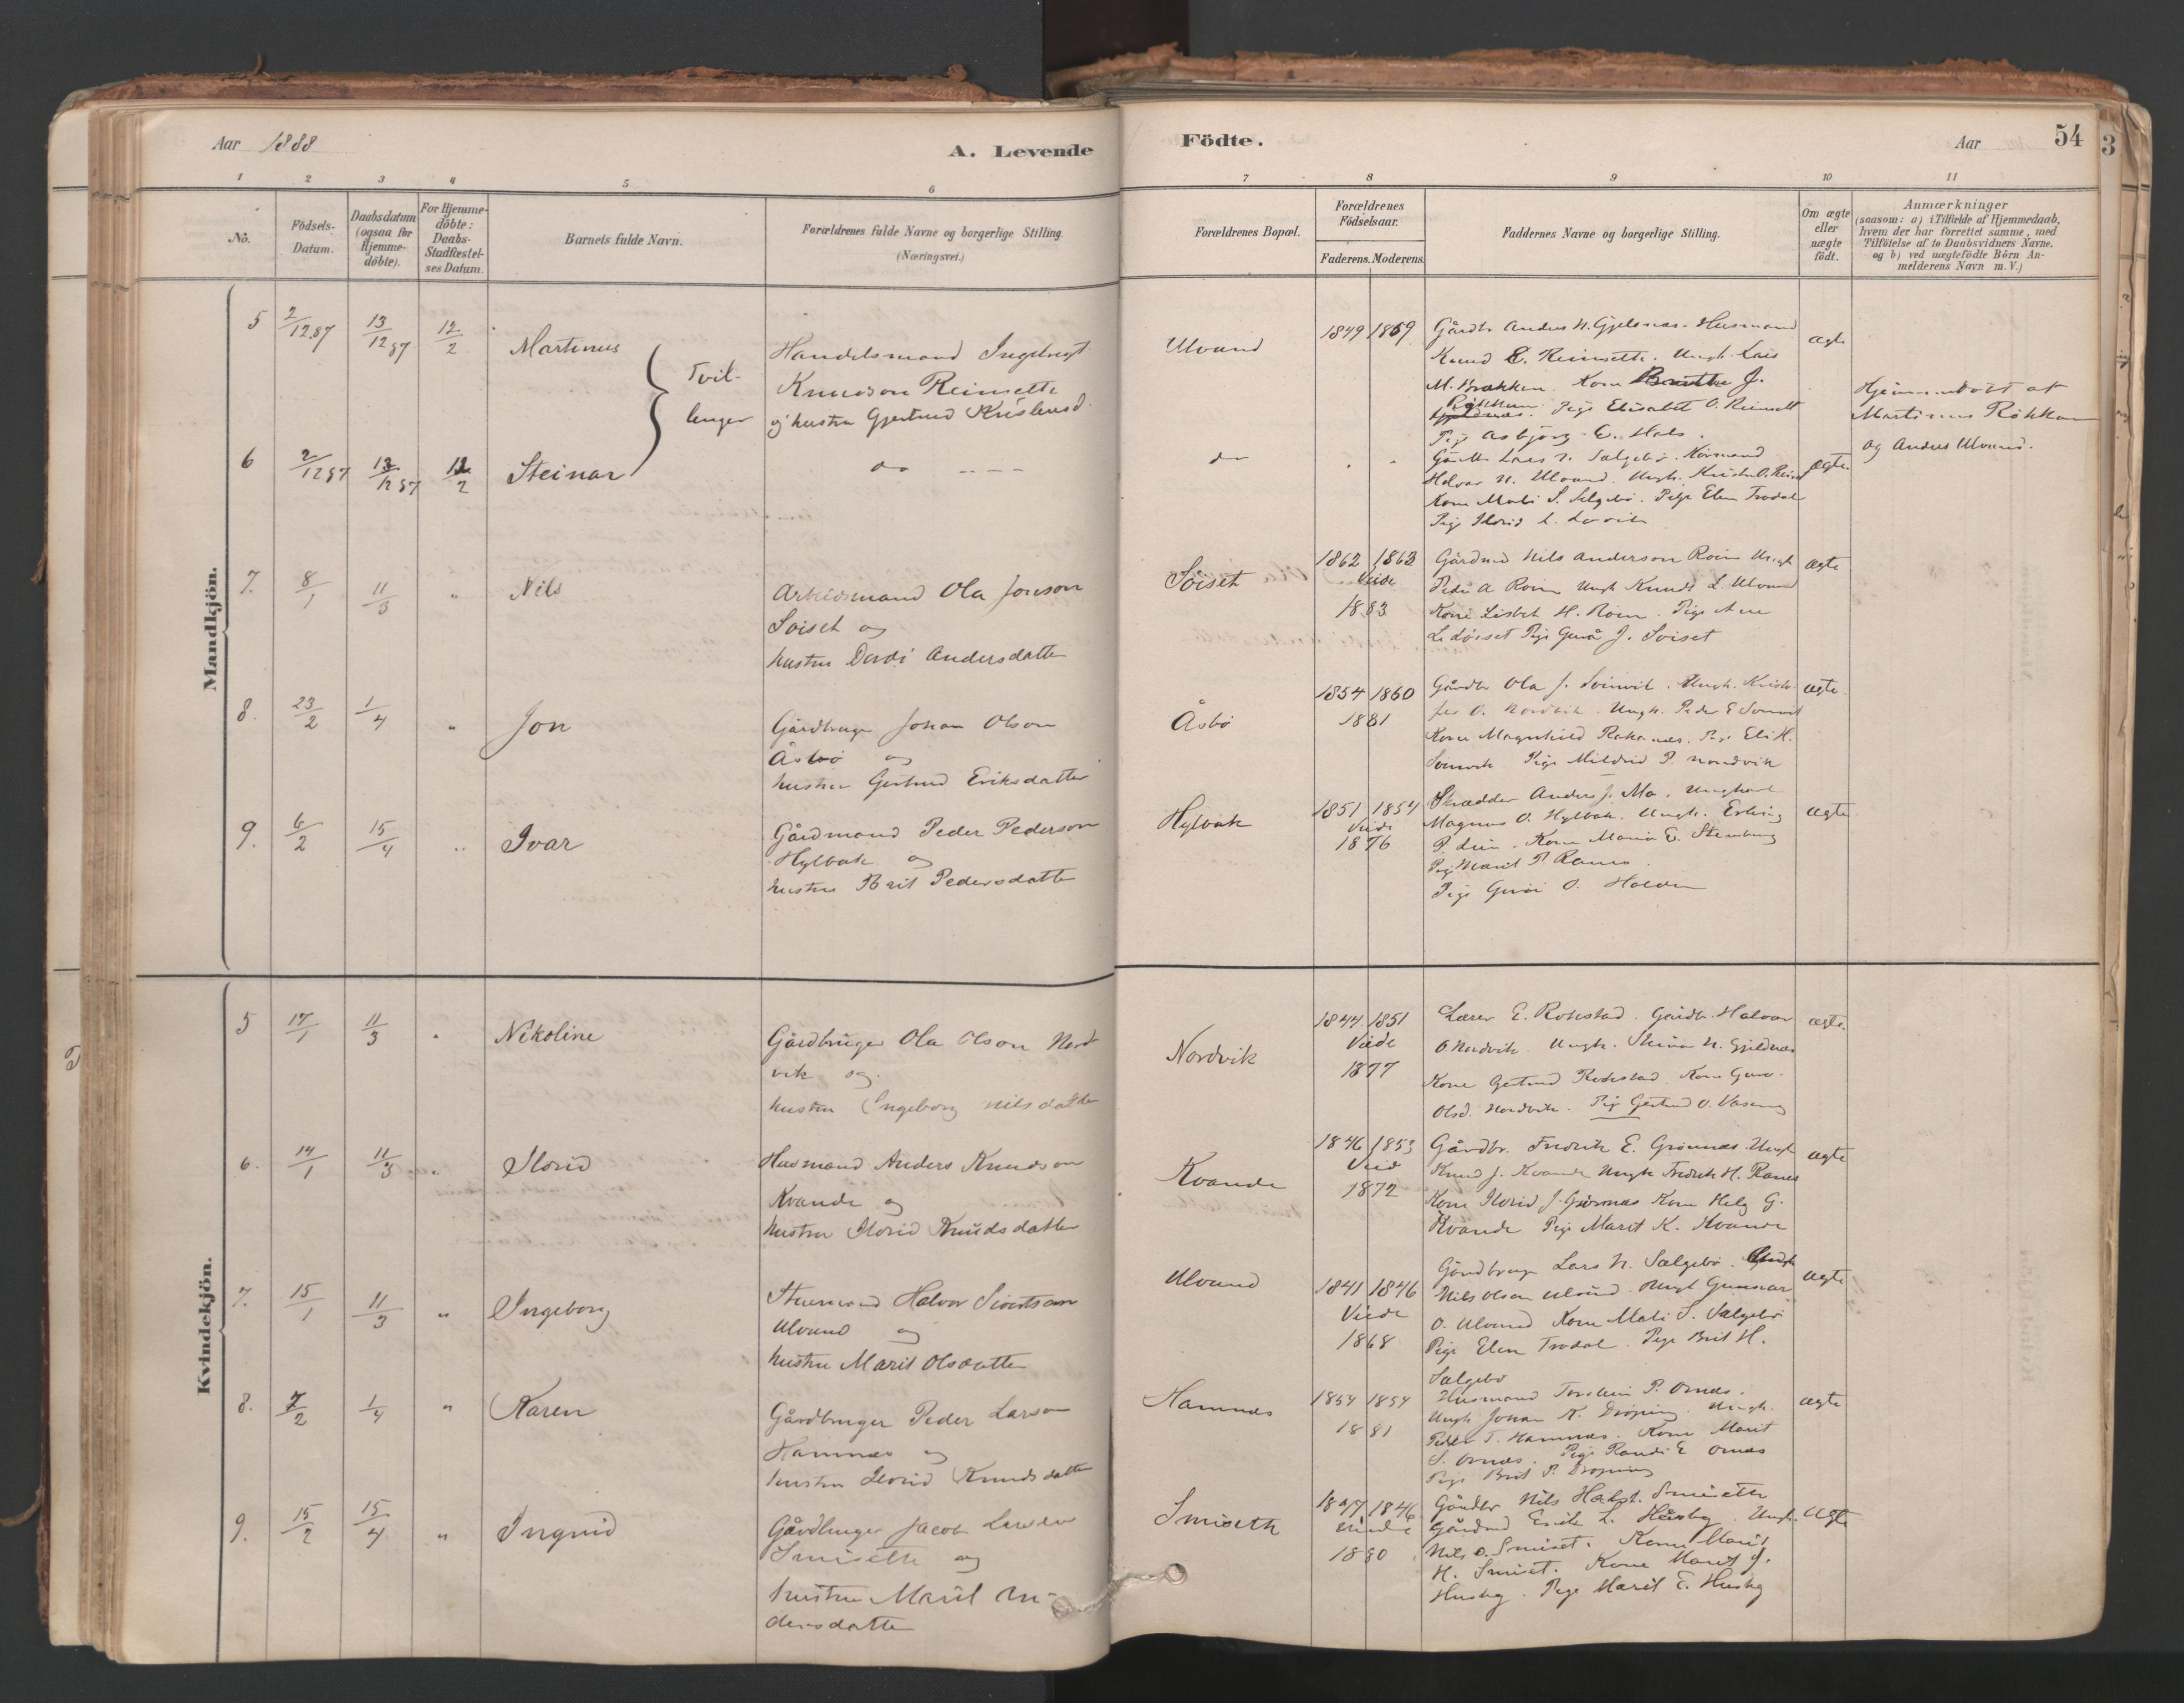 Aar 1888
A. Levende
Födte.
Aar
54
3
1 2 3 4 5 6 7 8 9 10 11
No.
Födsels-
Datum.
Daabsdatum
(ogsaa for
Hjemme-
döbte).
For Hjemme-
döbte:
Daabs-
Stadfæstel-
ses Datum.
Barnets fulde Navn.
Forældrenes fulde Navne og borgerlige Stilling.
(Næringsvei.)
Forældrenes Bopæl.
Forældrenes
Födselsaar.
Faderens. Moderens.
Faddernes Navne og borgerlige Stilling.
Om ægte
eller
uægte
födt.
Anmærkninger
(saasom: a) i Tilfælde af Hjemmedaab,
hvem der har forrettet samme, med
Tilföielse af to Daabsvidners Navne.
og b) ved uægtefödte Börn An-
melderens Navn m. V.)
Mandkjön.
5 2/12 87 13/12 87 12/2 Martinus
Tvil-
linger
Handelsmand Ingebrigt
Knudson Reinsette
og hustru Gjertrud Kristensd.
Ulvund
1849 1869
Gårdbr Anders N. Gjeldnæs. Husmand
Knud E. Reinsette. Ungk. Lars
M. Brækken. Kone J.
Røkkum
Pige Elisabet O. Reinsett
Pige Asbjørg E. Hals.
ægte
Hjemmedøbt af
Martinus Røkkum
og Anders Ulvund.
6 2/12 87 13/12 87 12/2 Steinar
do
do
Gårdbr Lars N. Sælgebø.
Halvor N. Ulvund. Ungk.
Kone Mali S. Sælgebø. Pige Elen Trødal
Pige Storid L.
ægte.
7. 8/1 11/3 " Nils
Arbeidsmand Ola Jonson
Söiset og
hustru Dordi Andersdatter
Söiset
1862 1863
Viede
1883
Gårdmd Nils Anderson Roim Ungk
Peder A Roim Ungk Knud L. Ulvund
Kone Lisbet H. Roim. Pige Ane
L. Söiset Pige Guro J. Soiset
ægte
8. 23/2 1/4 " Jon
Gårdbruger Johan Olson
Åsbø og
hustru Gertrud Eriksdatter
Åsbø
1854 1860
1881
Gårdbr Ola J. Soinvik. Ungk. Kristo-
fer O. Nordvik. Ungk. Peder E Soinvik
Kone Magnhild Rakanæs. Pige Eli H.
Soinvik Pige Mildrid P. Nordvik
ægte.
9. 6/2 15/4 " Ivar
Gårdmand Peder Pederson
Hylbak og
hustru Brit Pedersdatter
Hylbak
1851 1854
Viede
1876
Skrædder Anders J. Mo. Ungkarl
Magnus O. Hylbak. Ungk. Erling
P. Lein. Kone Maria E. Stenberg
Pige Marit P Ranes.
Pige Guroi O. Halden
ægte
Kvindekjön.
5 17/1 11/3 " Nikoline
Gårdbruger Ola Olson Nord-
vik og
hustru Ingeborg Nilsdatter
Nordvik
1844 1851
Viede
1877
Lærer E. Rokstad. Gårdbr. Halvor
O. Nordvik. Ungk. Steinar N. Gjeldnæs
Kone Gertrud Rokstad Kone Guro
Olsd. Nordvik. Pige Gertrud O.
ægte.
6. 14/1 11/3 " Storid
Husmand Anders Knudson
Kvande og
hustru Storid Knudsdatter
Kvande
1846 1853
Vied
1872
Gårdbr. Fredrik E. Grønnæs. Ungk
Knud J. Kvande Ungk Fredrik H. Ranes
Kone Storid J. Grønnæs Kone Helg G.
Kvande Pige Marit K. Kvande
ægte
7. 15/1 11/3 " Ingeborg
Stuemand Halvor Sivertson
Ulvund og
hustru Marit Olsdatter
Ulvund
1841 1846
Viede
1868
Gårdbruger Lars N. Sælgebø. Ungk
Nils Olson Ulvund. Ungk Gunnar
O. Ulvund Kone Mali S. Sælgebø
Pige Elen Trødal. Pige Brit H.
Sælgebø
ægte
8. 7/2 1/4 " Karen
Gårdbruger Peder Larson
Hamnæs og
hustru Storid Knudsdatter
Hamnæs
1854 1854
1881
Husmand Torstein P. Ornæs.
Ungk Johan K. Drøpping. Ungk.
Peder T. Hamnæs. Kone Marit
S. Ornæs. Pige Randi E Ornæs
Pige Brit P. Drøpping
ægte
9. 15/2 15/4 " Ingrid
Gårdbruger Jacob Larson
Smisette og
hustru Marit An-
dersdatter
Smiseth
1847 1846
viede
1880
Gårdbr Nils Halst. Smisette
Gårdmd Erik L. Husby. Ungk.
Nils O. Smiset. Kone Marit
H. Smiset. Kone Marit J.
Husby. Pige Marit E. Husby
ægte